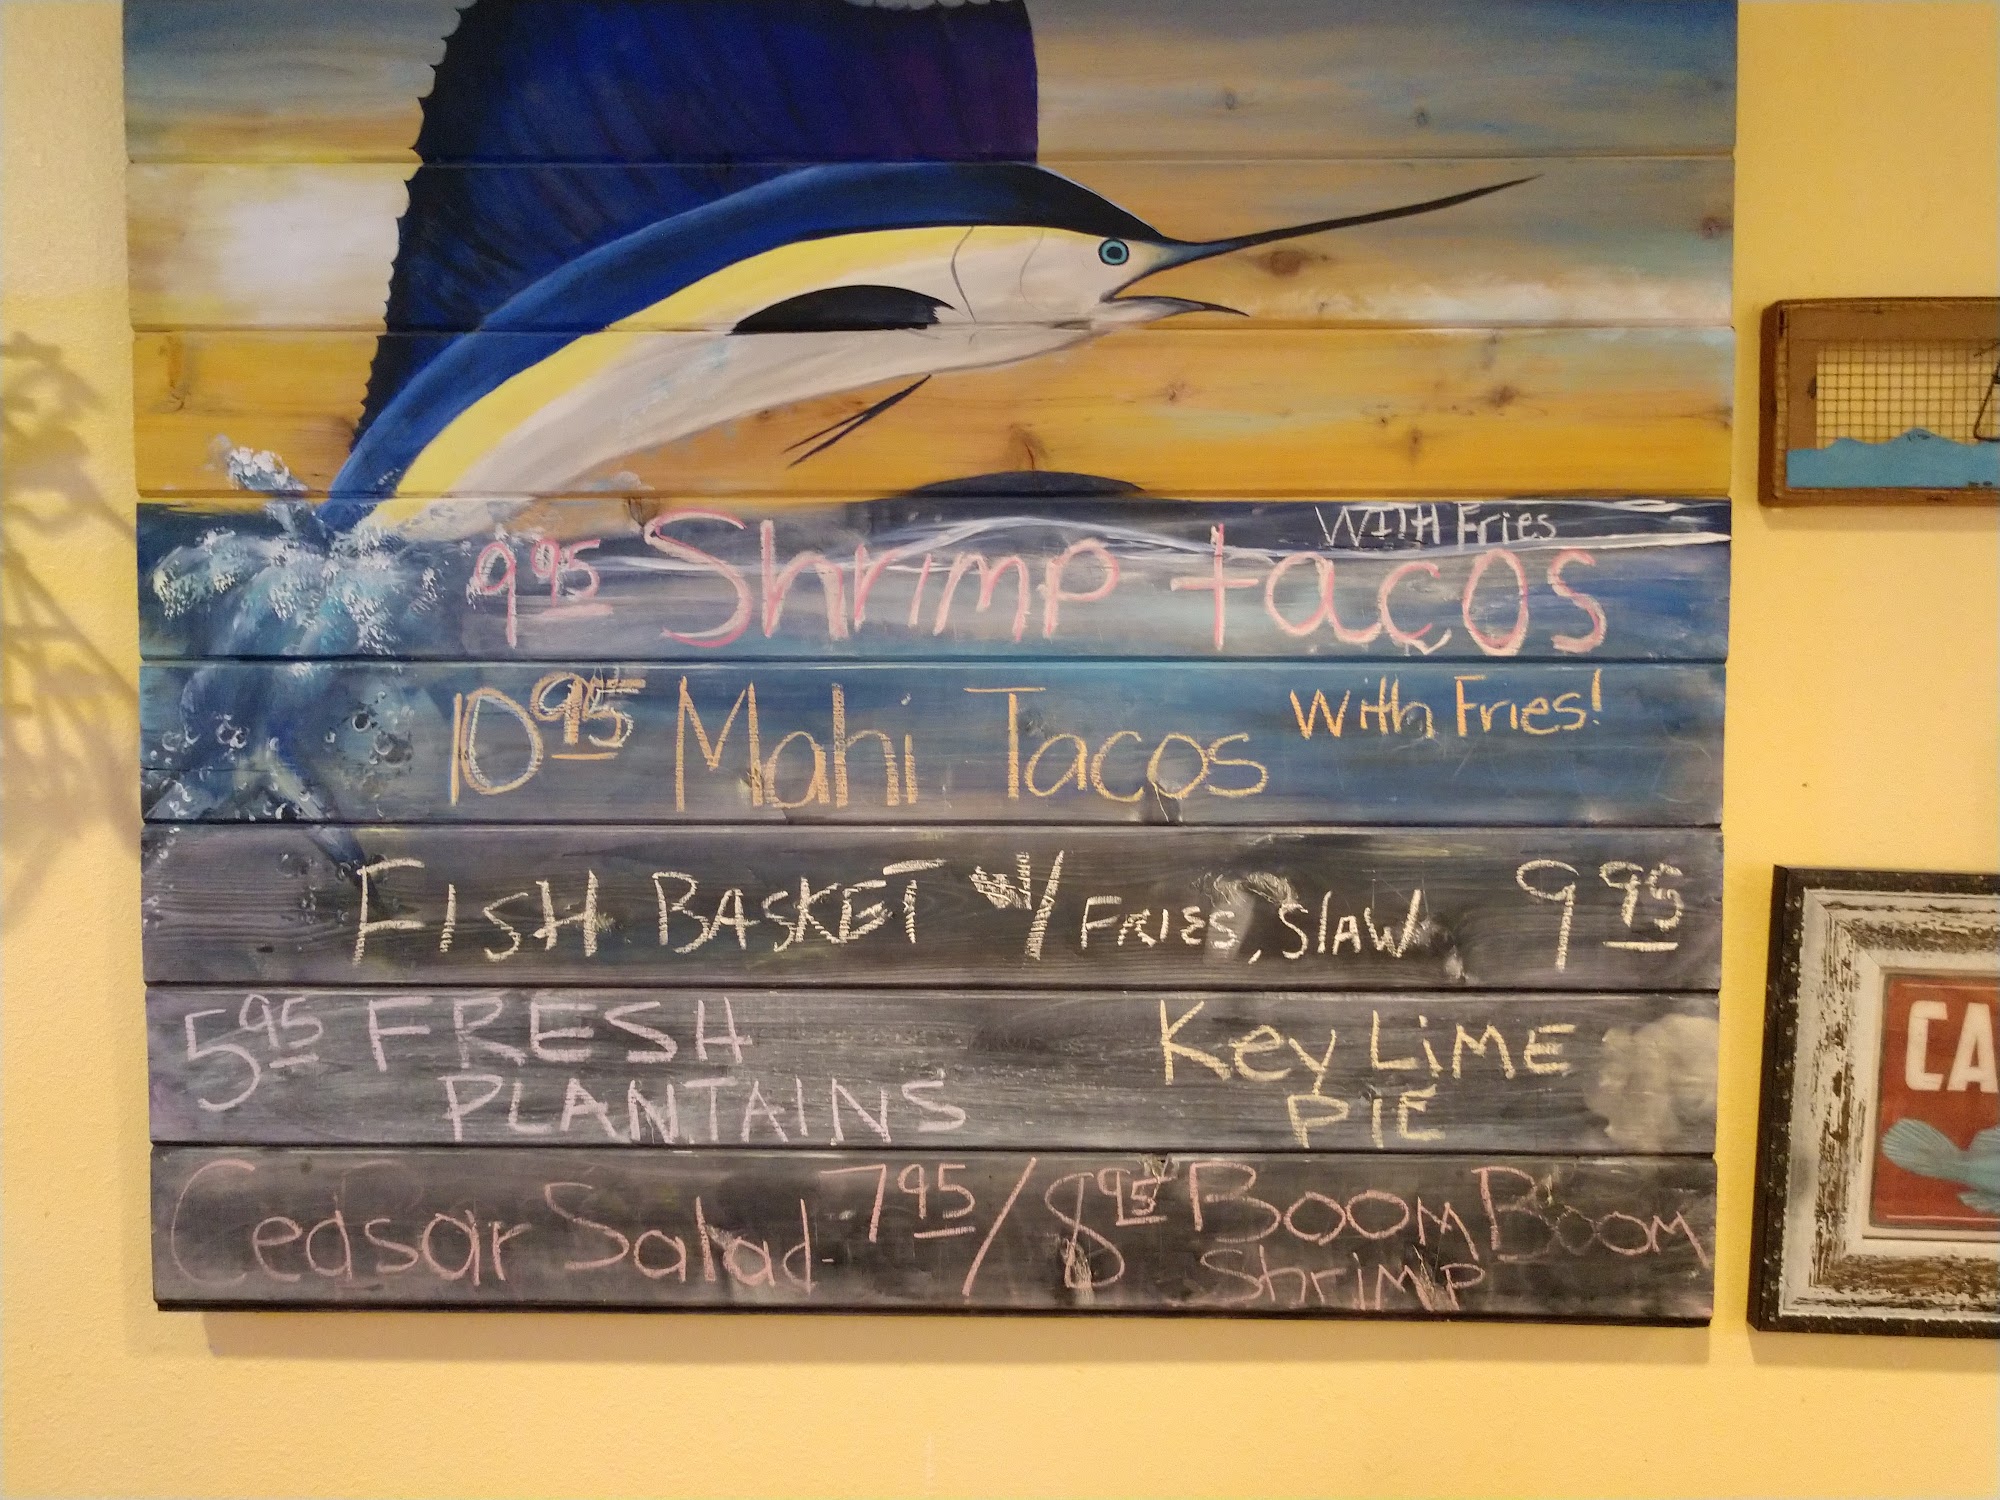 With Fries
9.95 Shrimp tacos
10.95 Mahi Tacos With Fries!
FISH BASKET W/ FRIES, SLAW 9.95
5.95 FRESH PLANTAINS
Key LiME PIE
Ceasar Salad - 7.95 / 8.95 BOOM BOOM Shrimp
CA